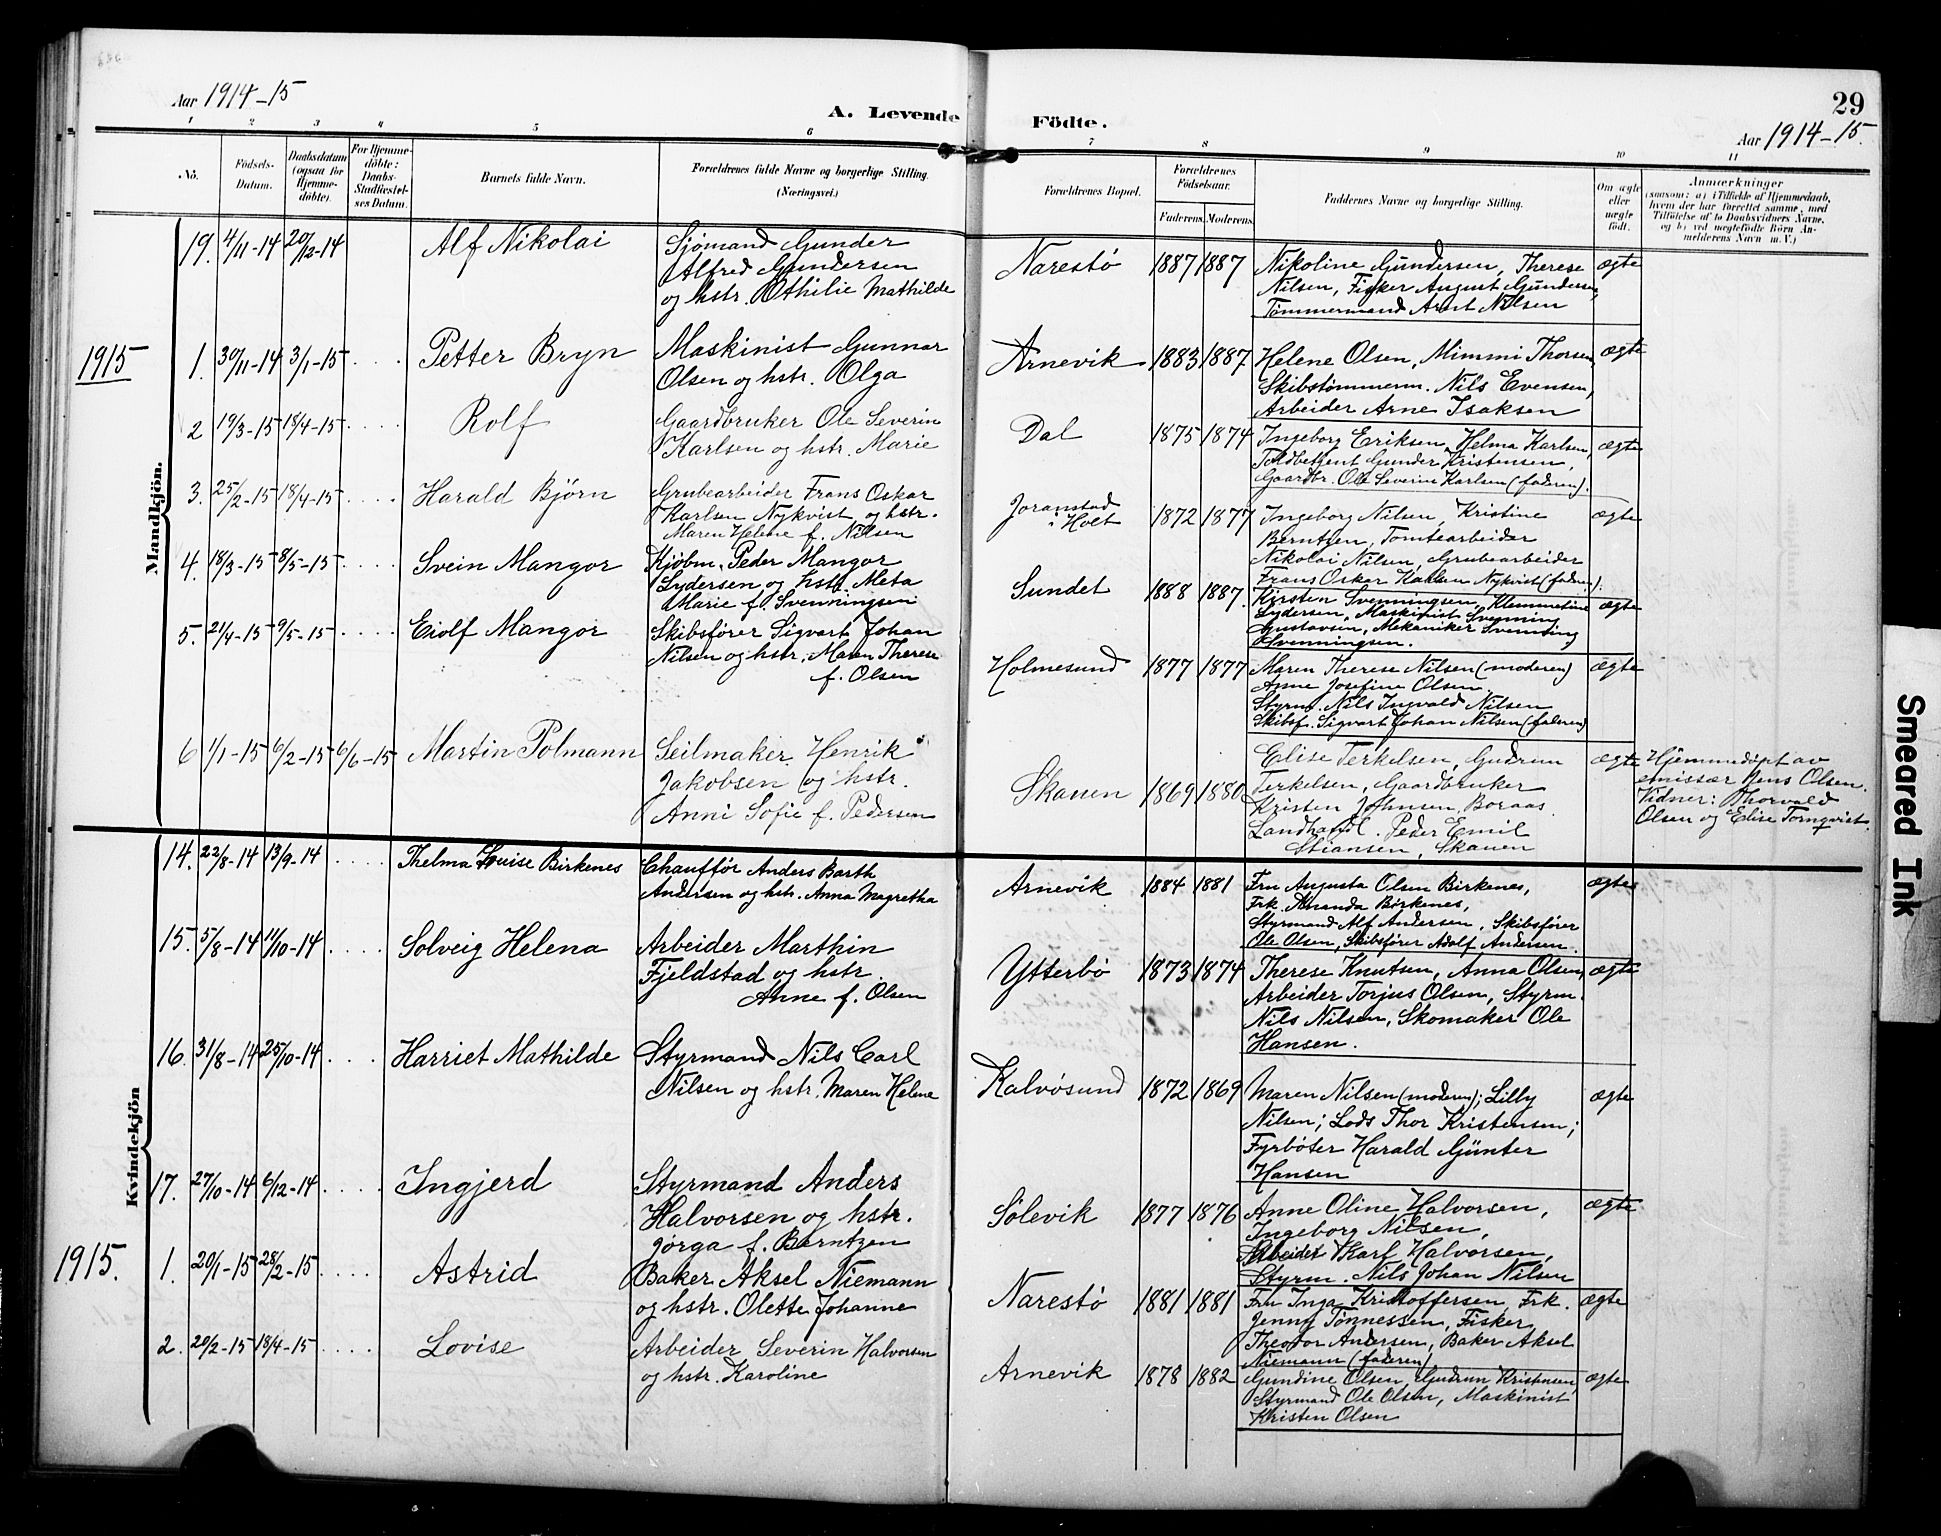 Aar 1914-15
A. Levende Födte.
29
Aar 1914-15.
1 2 3 4 5 6 7 8 9 10 11
No.
Födsels-
Datum.
Daabsdatum
(ogsaa for
Hjemme-
döbte).
For Hjemme-
döbte:
Daabs-
Stadfæstel-
ses Datum.
Barnets fulde Navn.
Forældrenes fulde Navne og borgerlige Stilling.
(Næringsvei.)
Forældrenes Bopæl.
Forældrenes
Födselsaar.
Faderens. Moderens.
Faddernes Navne og borgerlige Stilling.
Om ægte
eller
uægte
födt.
Anmærkninger
(saasom: a) i Tilfælde af Hjemmedaab,
hvem der har forrettet samme, med
Tilföielse af to Daabsvidners Navne,
og b) ved uægtefödte Börn An-
melderens Navn m. V.)
Mandkjön.
19. 4/11-14 20/12-14 Alf Nikolai
Sjømand Gunder
Alfred Gundersen
og hstr. Othilie Mathilde
Narestø 1887 1887
Nikoline Gundersen, Therese
Nilsen, Fisker August Gundersen,
Tømmermand Anst Nilsen
ægte
1915
1. 30/11-14 3/1-15 .... Petter Bryn
Maskinist Gunnar
Olsen og hstr. Olga
Arnevik 1883 1887
Helene Olsen, Mimmi Thorsen,
Skibstømmerm. Nils Evensen,
Arbeider Arne Isaksen
ægte
2 19/3-15 18/4-15 .... Rolf
Gaardbruker Ole Severin
Karlsen og hstr. Marie
Dal 1875 1874
Ingeborg Eriksen, Helma Karlsen,
Toldbetjent Gunder Kristensen,
Gaardbr. Ole Severin Karlsen (faderen).
ægte
3. 25/2-15 18/4-15 .... Harald Bjørn
Grubearbeider Frans Oskar
Karlsen Nykvist og hstr.
Maren Helene f. Nilsen
Joranstad
i Holt 1872 1877
Ingeborg Nilsen, Kristine
Berntzen, Tomtearbeider
Nikolai Nilsen, Grubearbeider
Frans Oskar Karlsen Nykvist (faderen).
ægte
4. 18/3-15 8/5-15 .... Svein Mangor
Kjøbm. Peder Mangor
Lydersen og hstr. Meta
Marie f. Svenningsen
Sundet 1888 1887.
Kirsten Svenningsen, Klemmetine
Lydersen, Maskinist Svenning
Gustavsen, Mekaniker Svenning
Svenningsen.
ægte
5. 21/4-15 9/5-15 .... Eiolf Mangor
Skibsfører Sigvart Johan
Nilsen og hstr. Maren Therese
f. Olsen
Holmesund 1877 1877
Maren Therese Nilsen (moderen)
Anne Josefine Olsen.
Styrm. Nils Ingvald Nilsen
Skibsf. Sigvart Johan Nilsen (faderen)
ægte
6 1/1-15 6/2-15 6/6-15 Martin Polmann
Seilmaker Henrik
Jakobsen og hstr.
Anni Sofie f. Pedersen
Skauen 1869 1880
Elise Terkelsen, Gudrun
Terkelsen, Gaardbruker
Kristen Johnsen, Boraas
Landhandl. Peder Emil
Stiansen, Skauen
ægte
Hjemmedøpt av
emissær Jens Olsen.
Vidner: Thorvald
Olsen og Elise Tornqvist.
Kvindekjön
14. 22/8-14 13/9-14 .... Thelma Louise Birkenes
Chauffør Anders Barth
Andersen og hstr. Anna Magretha
Arnevik 1884 1881
Fru Augusta Olsen Birkenes,
Frk. Amanda Birkenes,
Styrmand Alf Andersen, Skibsfører
Ole Olsen, Skibsfører Adolf Andersen.
ægte
15. 5/8-14 11/10-14 .... Solveig Helena
Arbeider Marthin
Fjeldstad og hstr.
Anne f. Olsen
Ytterbø 1873 1874
Therese Knutsen, Anna Olsen,
Arbeider Torjus Olsen, Styrm.
Nils Nilsen, Skomaker Ole
Hansen.
ægte
16. 31/8-14 25/10-14 .... Harriet Mathilde
Styrmand Nils Carl
Nilsen og hstr. Maren Helene
Kalvøsund 1872 1869
Maren Nilsen (moderen); Lilly
Nilsen; Lods Thor Kristensen;
Fyrbøter Harald Günter
Hansen
ægte
17. 27/10-14 6/12-14 .... Ingjerd
Styrmand Anders
Halvorsen og hstr.
Jørga f. Berntzen
Sølevik 1877 1876
Anne Oline Halvorsen,
Ingeborg Nilsen,
Arbeider Karl Halvorsen,
Styrm. Nils Johan Nilsen
ægte
1915.
1. 20/1-15 28/2-15 .... Astrid
Baker Aksel Niemann
og hstr. Olette Johanne
Narestø 1881 1881
Fru Inga Kristoffersen, Frk.
Jenny Tønnessen, Fisker
Theodor Andersen, Baker Aksel
Niemann (faderen)
ægte
2. 20/2-15 18/4-15 .... Lovise
Arbeider Severin Halvorsen
og hstr. Karoline
Arnevik 1878 1882
Gundine Olsen, Gudrun Kristensen,
Styrmand Ole Olsen, Maskinist
Kristen Olsen
ægte
Smeared Ink